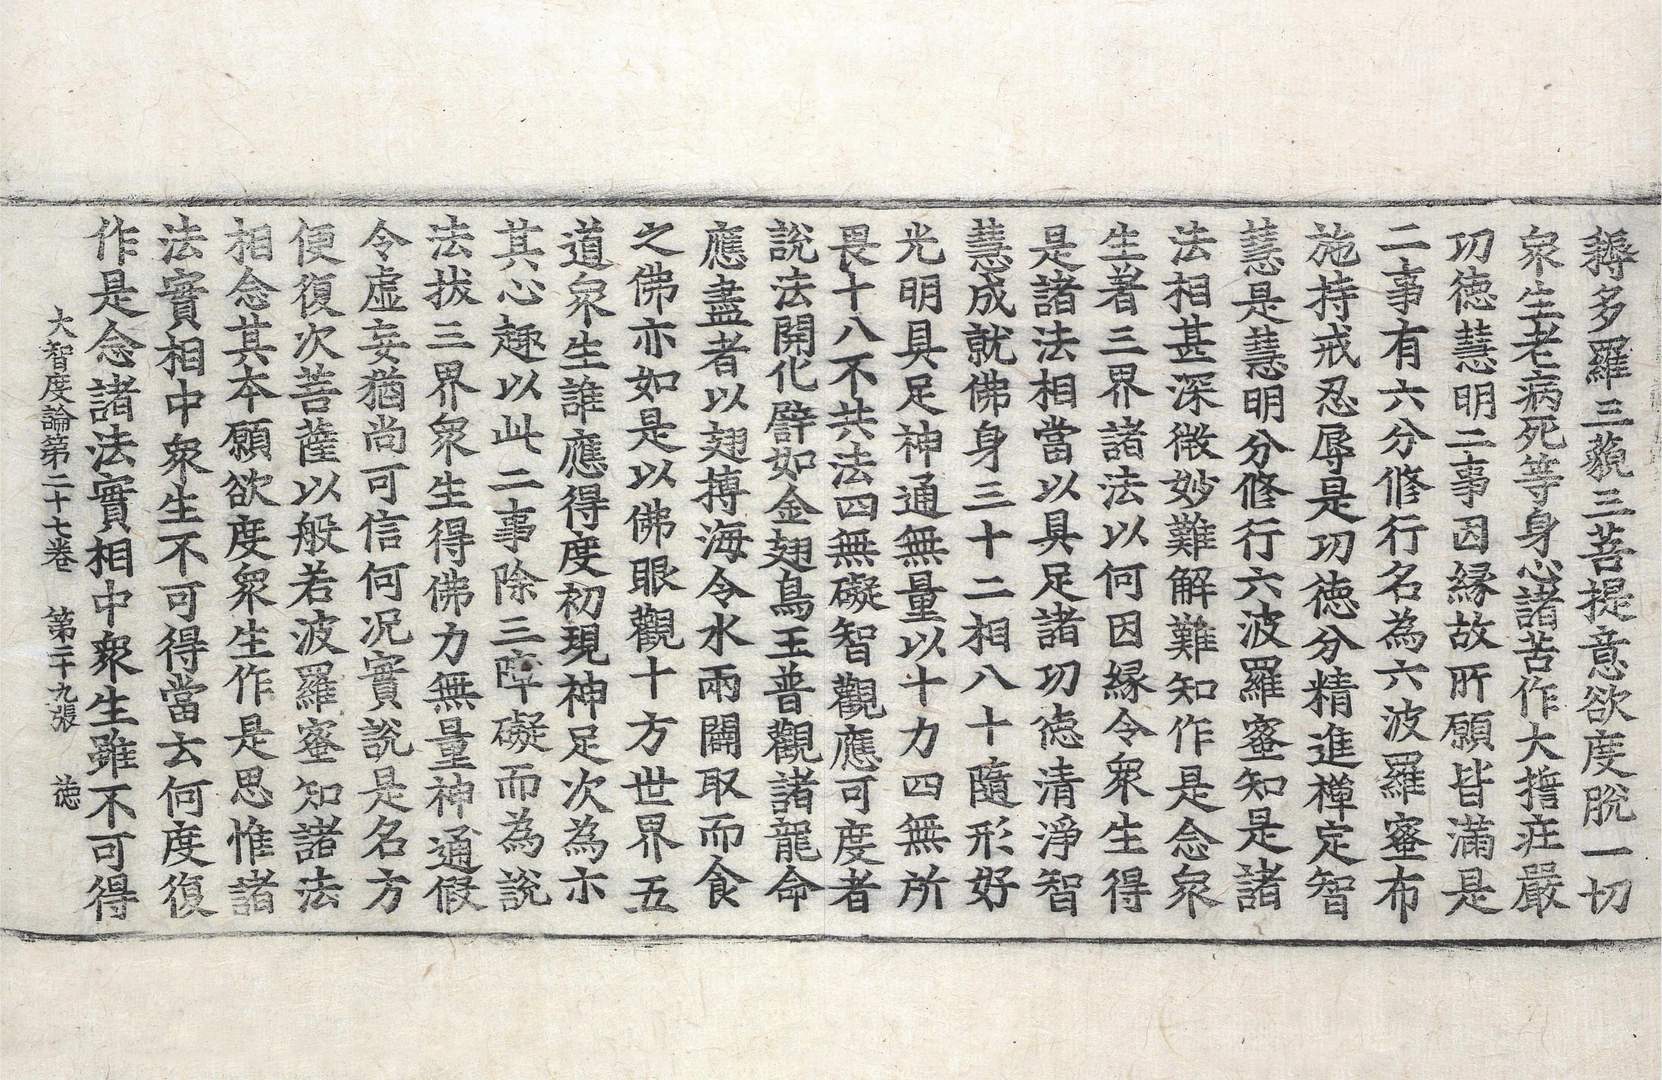 耨多羅三藐三菩提意欲度脫一切
衆生老病死等身心諸苦作大擔莊嚴
功徳慧明二事因縁故所願皆滿是
二事有六分修行名為六波羅蜜布
施持戒忍辱是功徳分精進禪定智
慧是慧明分修行六波羅蜜知是諸
法相甚深微妙難解難知作是念衆
生著三界諸法以何因縁令衆生得
是諸法相當以具足諸功徳清淨智
慧成就佛身三十二相八十隨形好
光明具足神通無量以十力四無所
畏十八不共法四無礙智觀應可度者
說法開化譬如金翅鳥王普觀諸龍命
應盡者以翅搏海令水兩闢取而食
之佛亦如是以佛眼觀十方世界五
道衆生誰應得度初現神足次為示
其心趣以此二事除三障礙而為說
法拔三界衆生得佛力無量神通假
令虛妄猶尚可信何况實說是名方
便復次菩薩以般若波羅蜜知諸法
相念其本願欲度衆生作是思惟諸
法實相中衆生不可得當云何度復
作是念諸法實相中衆生雖不可得
大智度論第二十七卷 第二十九張 徳